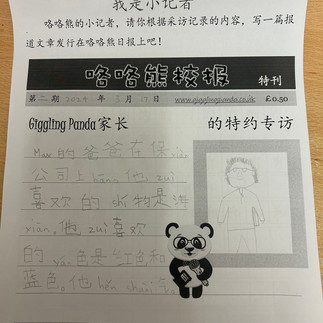 我是小记者
咯咯熊的小记者，请你根据采访记录的内容，写一篇报
道文章发行在咯咯熊日报上吧！
咯咯熊校报 特刊
第二期 2024 年 3月 17日 www.gigglingpanda.co.uk £0.50
Giggling Panda家长 的特约专访
Max的爸爸在保xiǎn
公司上bān。他 zuì
喜欢的shí物是海
xiān。他 zuì 喜欢
的 yán色是红色和
蓝色。他 hěn shuài